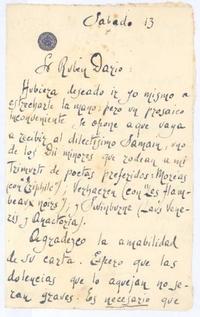 Sabado 13
Sr Ruben Dario:
Hubiera deseado ir yo mismo a
estrecharle la mano; pero un prosaico
inconveniente se opone a que vaya
a recibir al dilectisimo Samain, uno
de los Dii minores que rodean a mi
Trimurti de poetas preferidos: Moréas
(con Eriphile); Verhaeren (con "Les Flam-
beaux noirs"), y Swinburne (Laus Vene-
ris y Anactoria).
Agradezco la amabilidad
de su carta. Espero que las
dolencias que lo aquejan no se-
ran graves. Es necesario que